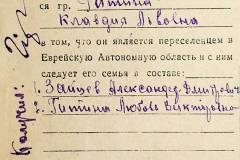 ся гр. Титина
Клавдия Львовна
в том, что он является переселенцем в
Еврейскую Автономную область и с ним
следует его семья в составе:
1. Зайцев Александр Дмитрович
2. Титина Любовь Викторовна
Получил: